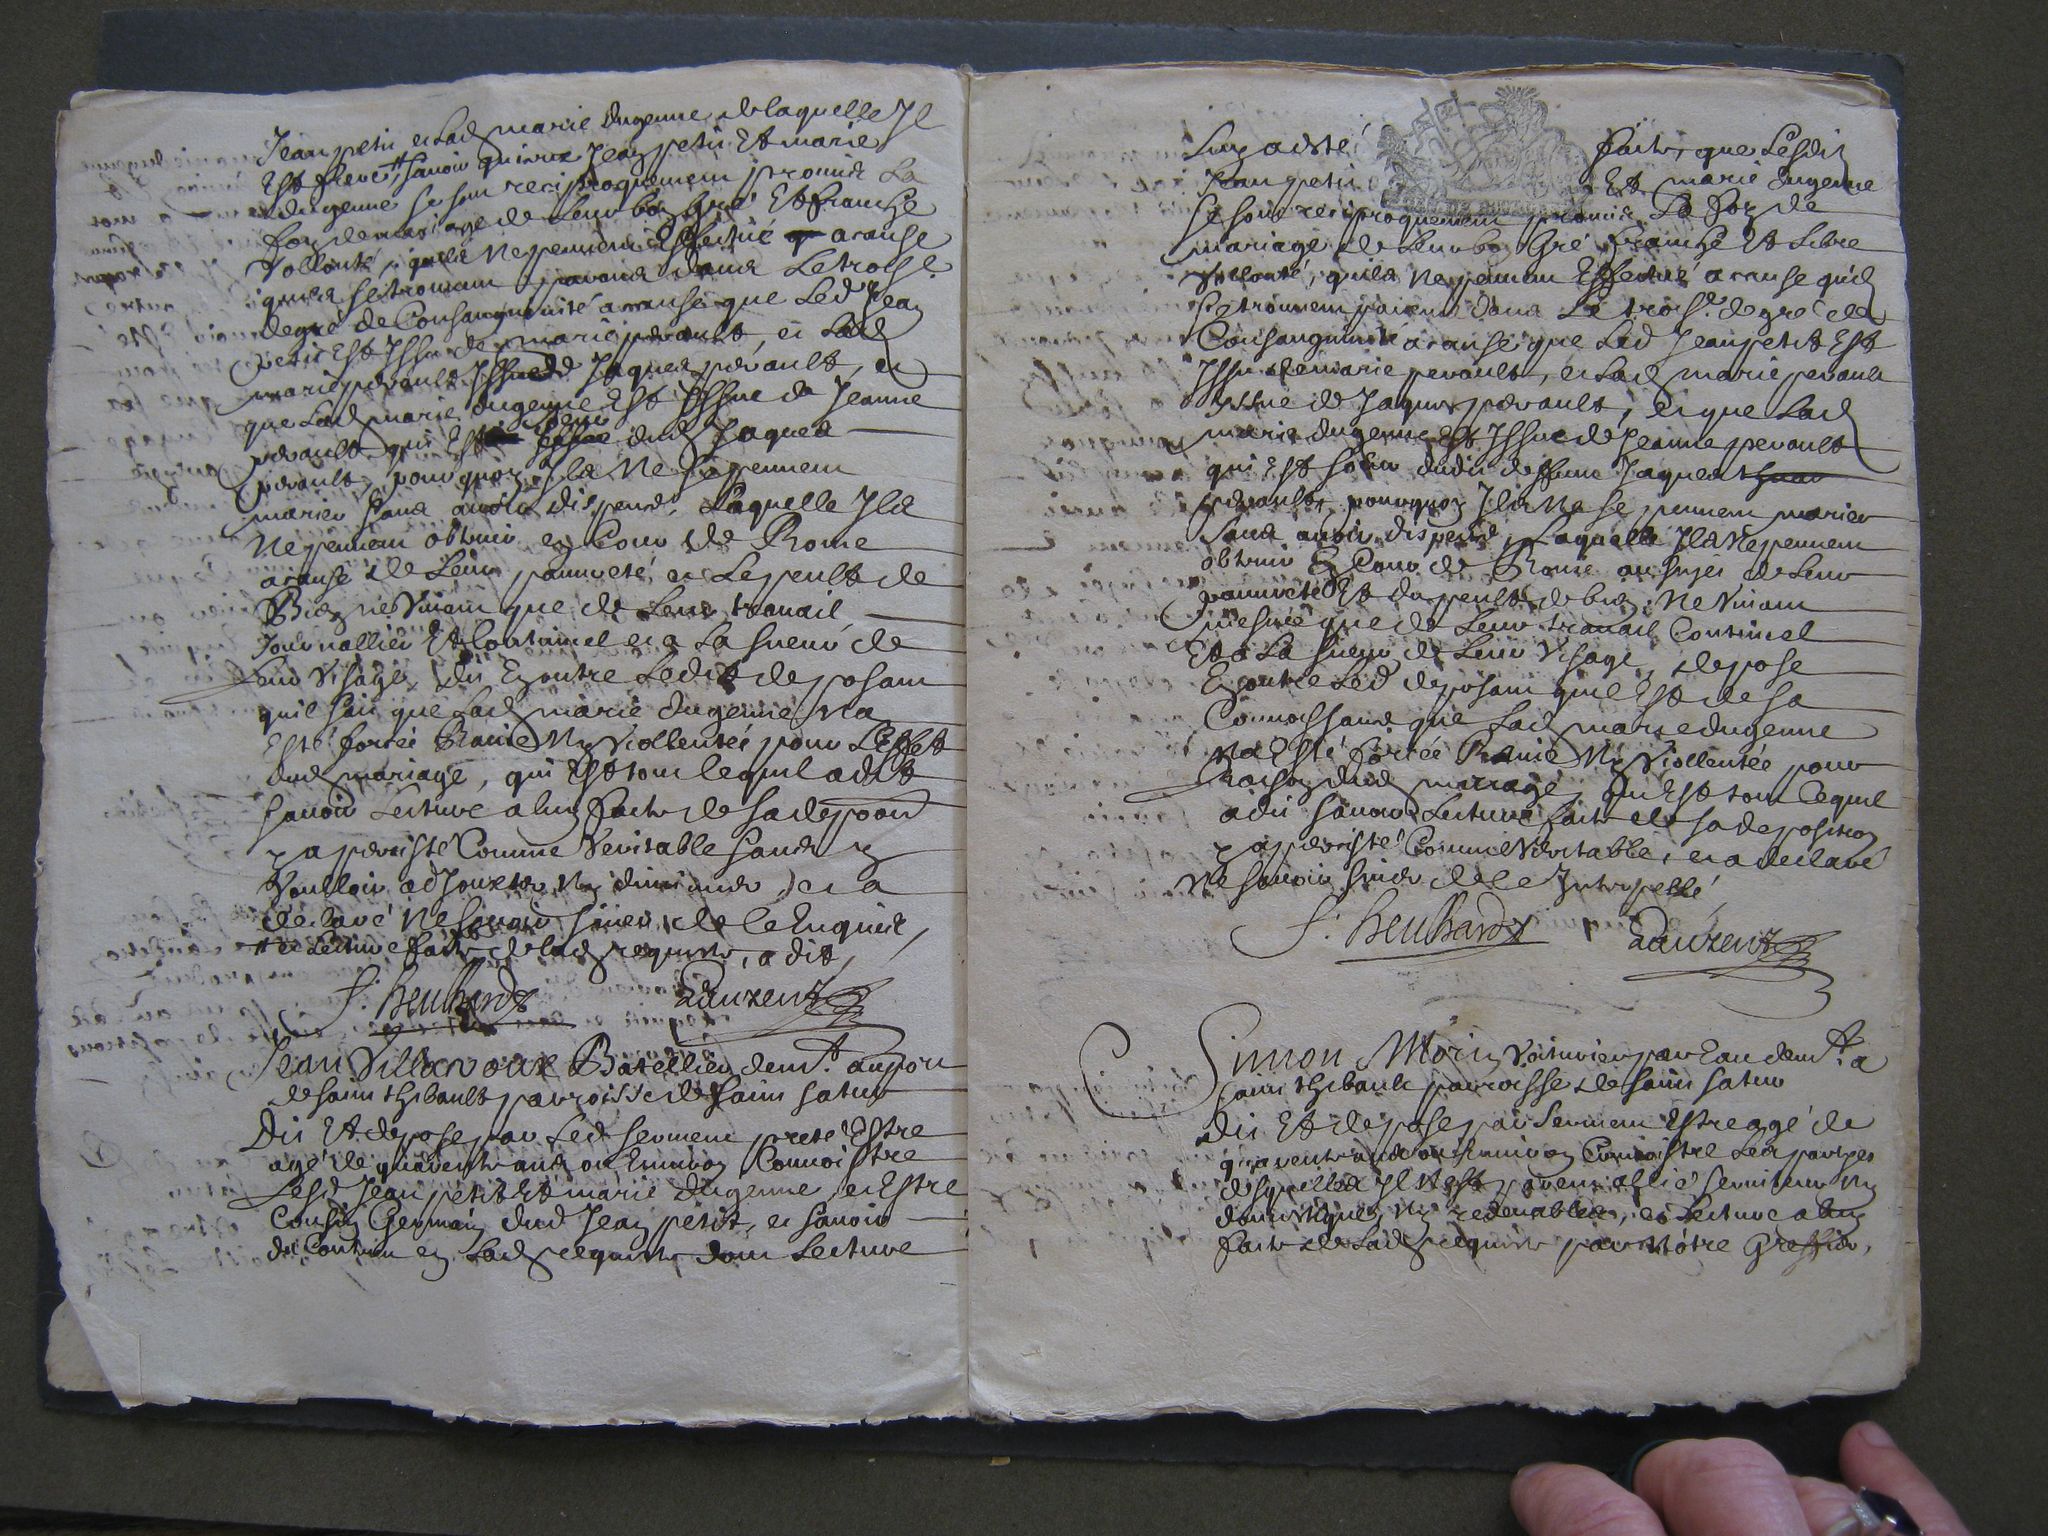 Jean petit et lad marie dugenne de laquelle Il
Est frere, sanoir quiceux Jean petit Et marie
dugenne se sont reciproquement promis La
foy de mariage de Leur bon Gré Et franche
Vollonté, quils ne peuvent Effectué a cause
quils se trouvent parans dans Le troise
degré de Consanguinité a cause que Led Jean
petit Est Issu de marie perault, et Lad
marie perault Issue de Jaques perault, et
que Lad marie dugenne Est Issue de Jeanne
perault qui Est soeur dud Jaques
perault, pourquoy Ils Ne se peuvent
marier sans avoir dispense, Laquelle Ils
Ne peuvent obtenir en Cour de Rome
a cause de Leur pauvreté et Le peult de
Bien ne Vivant que de Leur travail
Journallier Et Continuel et a La sueur de
Leur Visage, dit En outre Ledit deposant
quil sait que Lad marie dugenne Na
Esté forcée Ravie Ny Viollentée pour L'Effect
dud mariage, qui Est tout le quil a dit
sanoir Lecture a luy faite de sa depoon
y a persisté Comme Veritable sans y
Voulloir adjouxter Ny diminuer, et a
declaré Ne sçavoir siner de ce Enquis,
et Lecture faite de lad requeste, a dit,
f. heulhard Lauzent
Jean Villavoux Batellier demt. au port
de saint thibault parroisse de saint satur
Dit Et depose par Led serment presté Estre
agé de quarente ans ou Environ Connoistre
Lesd Jean petit Et marie dugenne, et Estre
Cousin Germain dud Jean petit, et sanoir
le Contenu en Lad requeste dont Lecture
Luy a esté faite, que Lesdit
Jean petit Et marie dugenne
se sont reciproquement promis La foy de
mariage de Leur bon Gré franche Et Libre
Vollonté, quils Ne peuvent Effectué a cause quils
se trouvent parens dans Le trois.e degré de
Consanguinité a cause que Led Jean petit Est
Issu de marie perault, et Lad marie perault
Issue de Jaques perault, et que Lad
marie dugenne Est Issue de Jeanne perault
qui Est soeur dudit deffunt Jaques
perault, pourquoy Ils Ne se peuvent marier
sans avoir dispense, Laquelle Ils Ne peuvent
obtenir En Cour de Rome au sujet de Leur
pauvreté Et du peult de bien, Ne Vivant
que de Leur travail Continuel
Et a La sueur de Leur Visage, depose
En outre Led deposant quil Est de sa
Connoissance que Lad marie dugenne
Na Esté forcée Ravie Ny Viollentée pour
Raison dud mariage, qui Est tout Ce quil
a dit sanoir Lecture faite de sa deposition
y a persisté Comme Veritable, et a declaré
Ne sanoir siner de ce Interpellé
f. heulhard Lauzent
Simon Morin Voiturier par Eau demt. a
saint thibault parroisse de saint satur
dit Et depose par serment Estre agé de
quarente ans ou Environ Connoistre Les parties
desquelles Il N'est parent allié serviteur Ny
domestique, Ny redevable, et Lecture a luy
faite de Lad requeste par Nôtre Greffier,